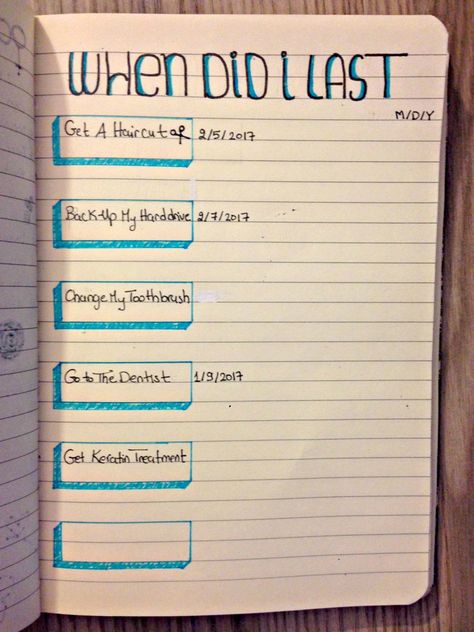 WHEN DiD i LAST
M/D/Y
Get A Haircut 2/5/2017
Back-Up My Harddrive 2/7/2017
Change My Toothbrush
Go to The Dentist 1/9/2017
Get Keratin Treatment